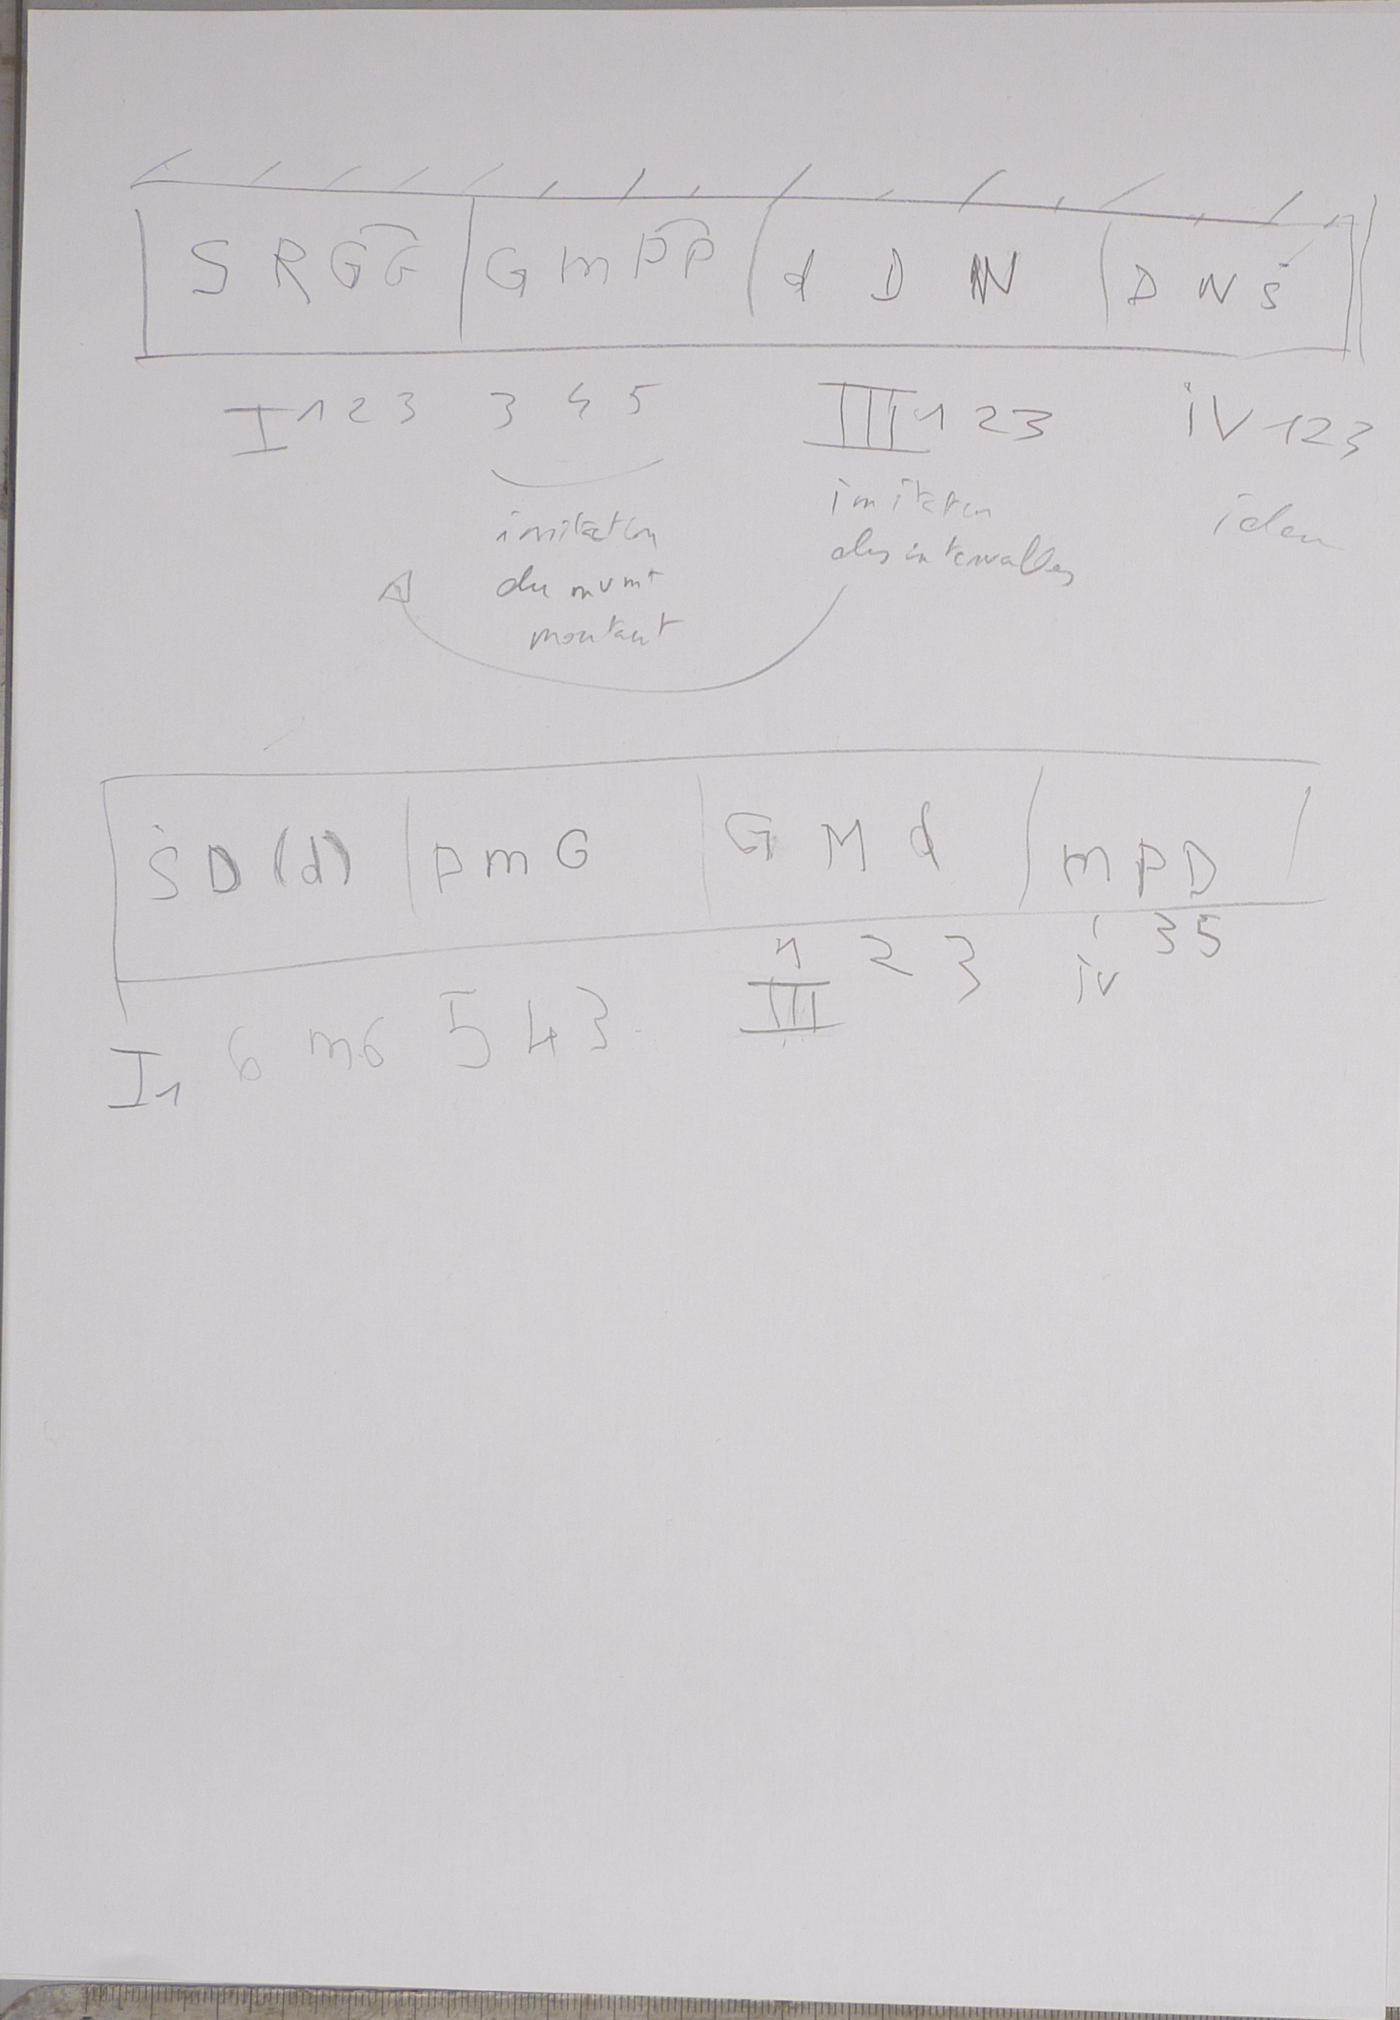 S R G G | G m P P | d D N | D N Ṡ
I 1 2 3 3 4 5 III 1 2 3 iv 1 2 3
imitation imitation idem
du mvmt des intervalles
montant
Ṡ D (d) | P m G | G M d | m P D |
I1 6 m6 5 4 3 III 1 2 3 iv 1 3 5